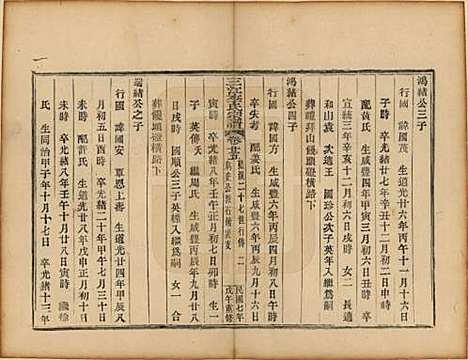 鴻緒公三子
行國 諱國茂 生道光廿六年丙午十一月十六
子時 卒光緒廿七年辛丑十二月初二日
配黃氏 生咸豐四年甲寅三月初六日丑時 卒
宣統三年辛亥十二月初六日戌時 女二 長適
 次適王 國珍公次子英年入繼爲嗣
葬禮拜山饅頭墩橫路下
鴻緒公四子
行國 諱國方 生咸豐六年丙辰四月初六日
卒失考 配姜氏 生咸豐六年丙辰九月十六日
寅時 卒光緒八年壬午正月初七日卯時 生一
子 英傳夭 繼周氏 生咸豐八年戊午正月廿八
日戌時 國順公三子英經入繼爲嗣 女一 合
葬饅頭墩橫路下
三江李氏宗譜 卷廿五
二十七世行傳 二
民國七年
戊午重修
端緒公之子
行國 諱國安 覃恩上壽 生道光廿四年甲辰八
月初五日酉時 卒光緒二十年甲午七月三十日
未時 配許氏 生道光廿八年戊申正月初十日
未時 卒光緒八年壬午十月廿八日寅時 繼徐
氏 生同治甲子年十月十七日 卒光緒十三年
一